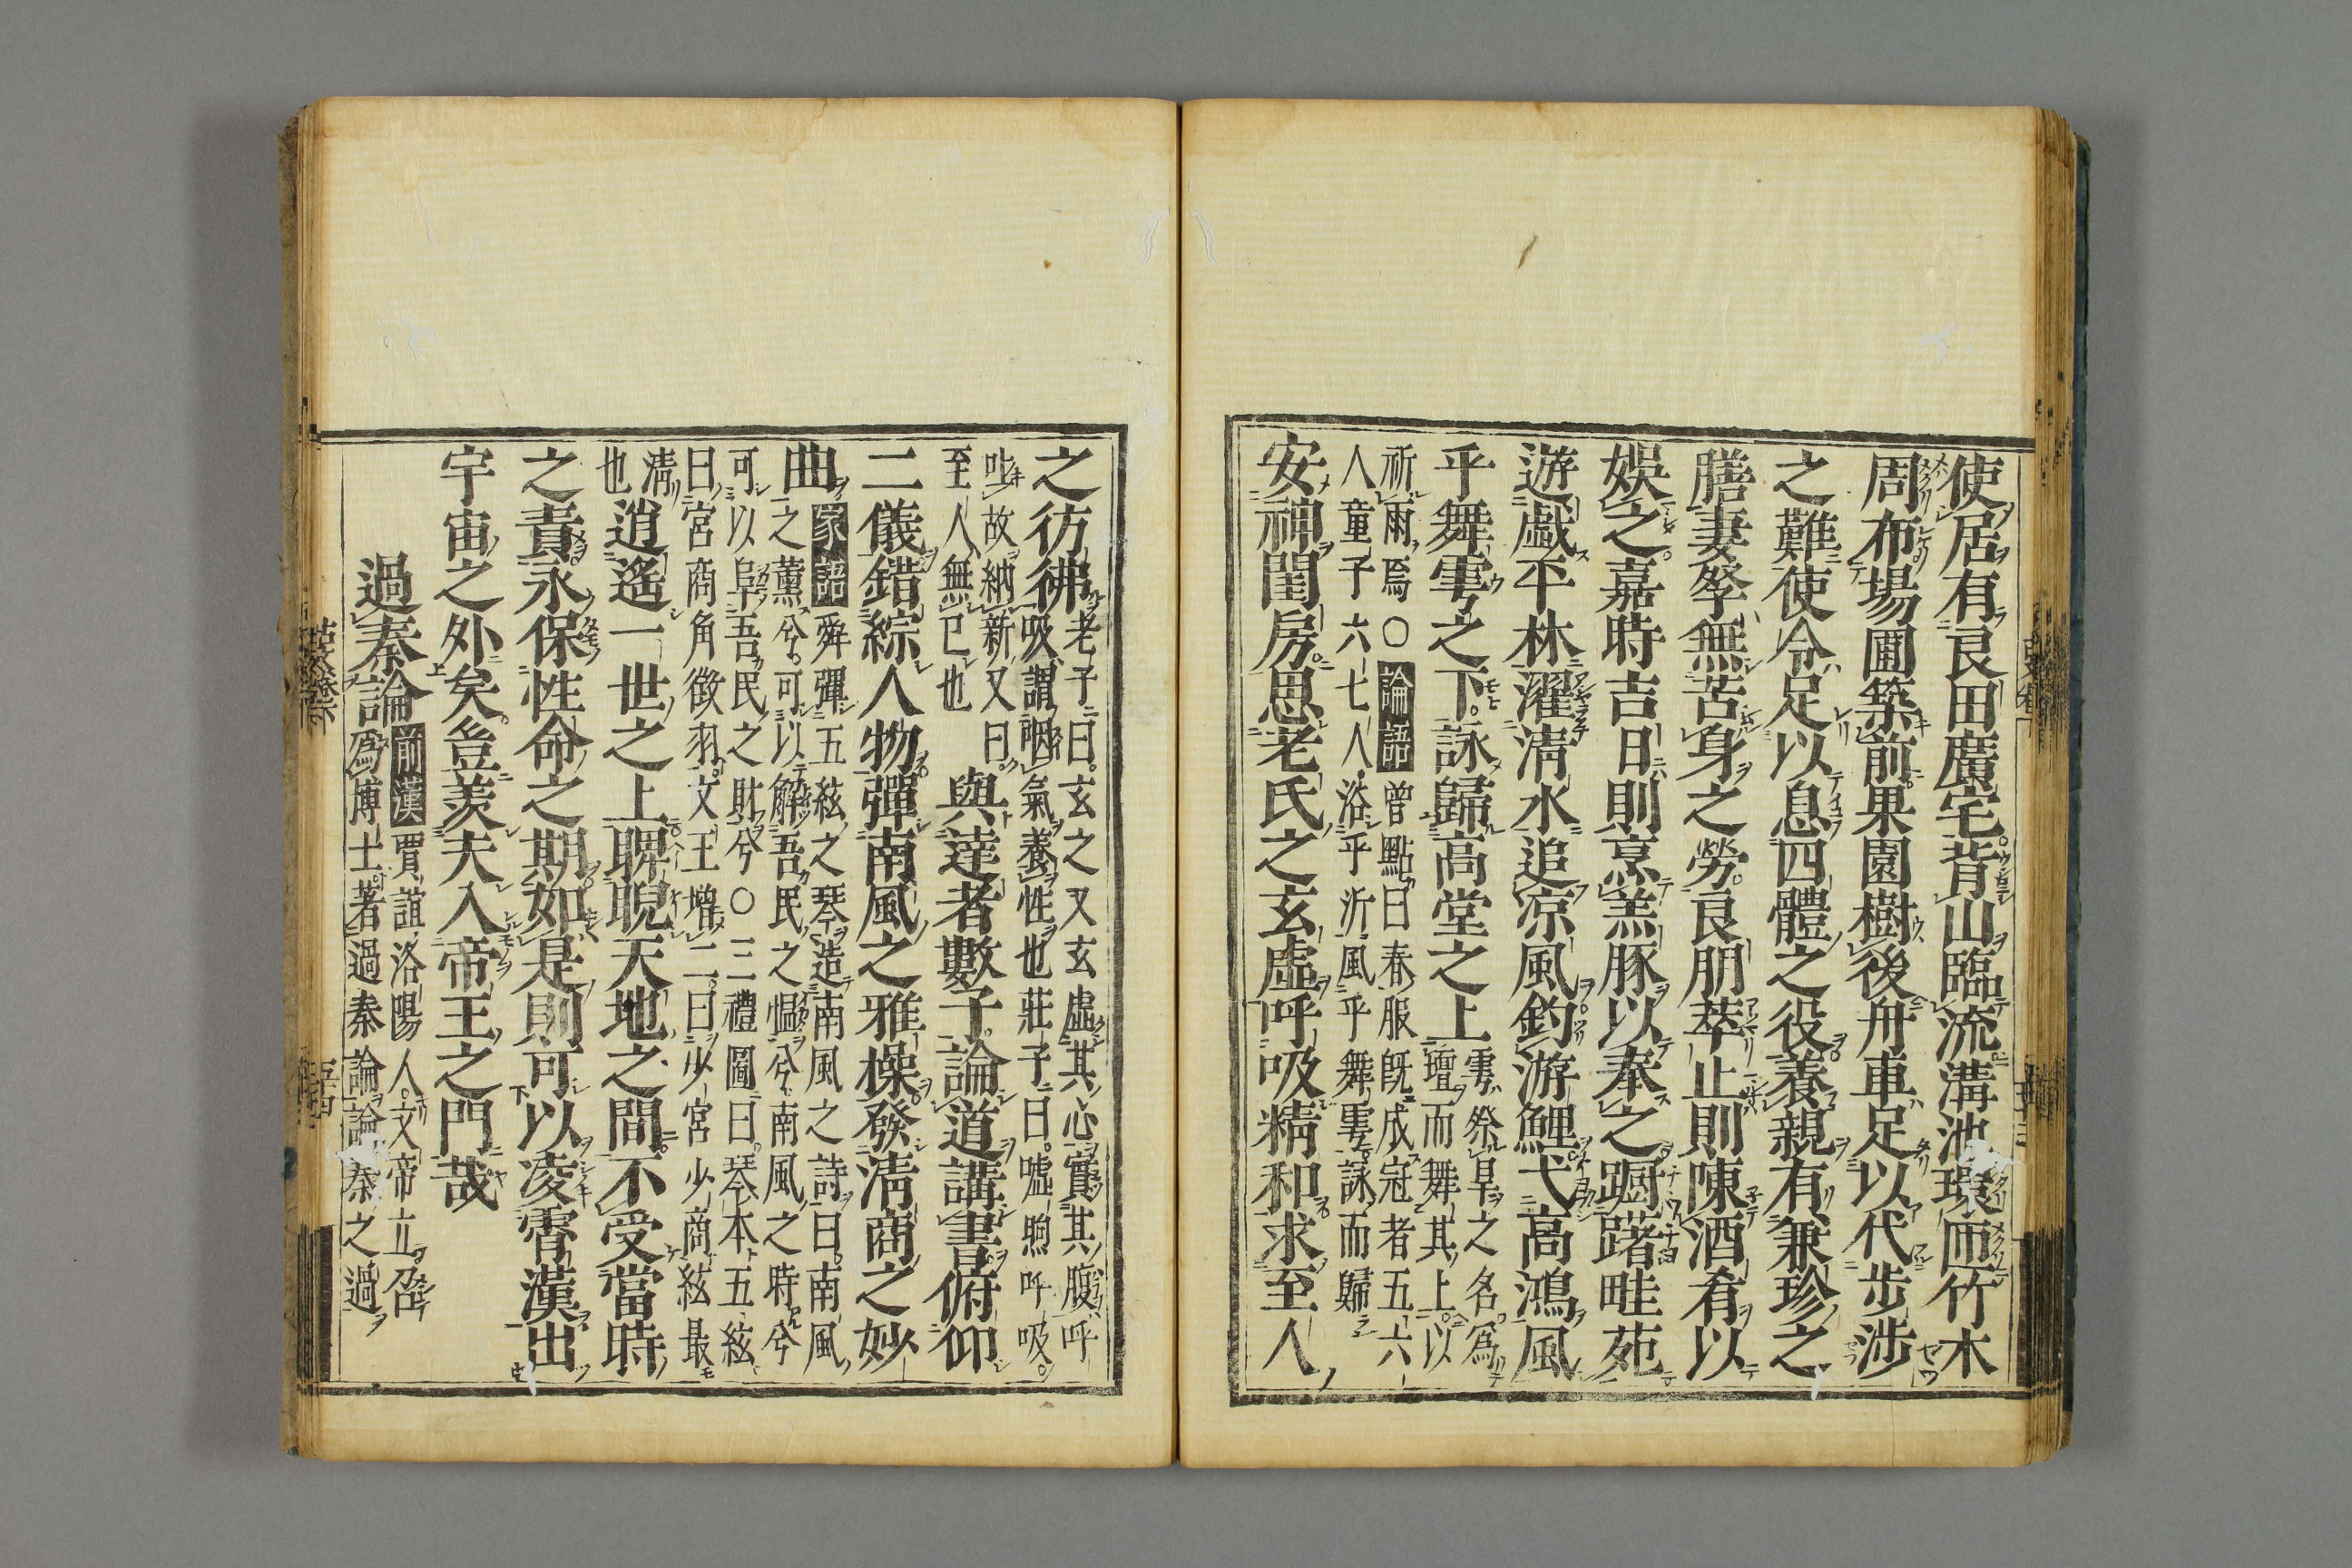 使居有良田廣宅背山臨流溝池環匝竹木
周布場圃築前果園樹後舟車足以代步涉
之難使令足以息四體之役養親有兼珍之
膳妻孥無苦身之勞良朋萃止則陳酒肴以
娛之嘉時吉日則烹羔豚以奉之躕躇畦苑
遊戲平林濯清水追涼風釣游鯉弋高鴻風
乎舞雩之下詠歸高堂之上
雩祭旱之名爲
壇而舞其上以
祈雨焉○論語曾點曰春服既成冠者五六
人童子六七人浴乎沂風乎舞雩詠而歸
安神閨房思老氏之玄虛呼吸精和求至人
之彷彿
老子曰玄之又玄虛其心實其腹呼
吸謂咽氣養性也莊子曰噓煦呼吸
吐故納新又曰
至人無已也
與達者數子論道講書俯仰
二儀錯綜人物彈南風之雅操發淸商之妙
曲
家語舜彈五絃之琴造南風之詩曰南風
之薰兮可以解吾民之慍兮南風之時兮
可以阜吾民之財兮○三禮圖曰琴本五絃
曰宮商角徵羽文王增二曰少宮少商絃最
淸
也
逍遙一世之上睥睨天地之間不受當時
之責永保性命之期如是則可以凌霄漢出
宇宙之外矣豈羨夫入帝王之門哉
過秦論
前漢賈誼洛陽人文帝立召
爲博士著過秦論論秦之過